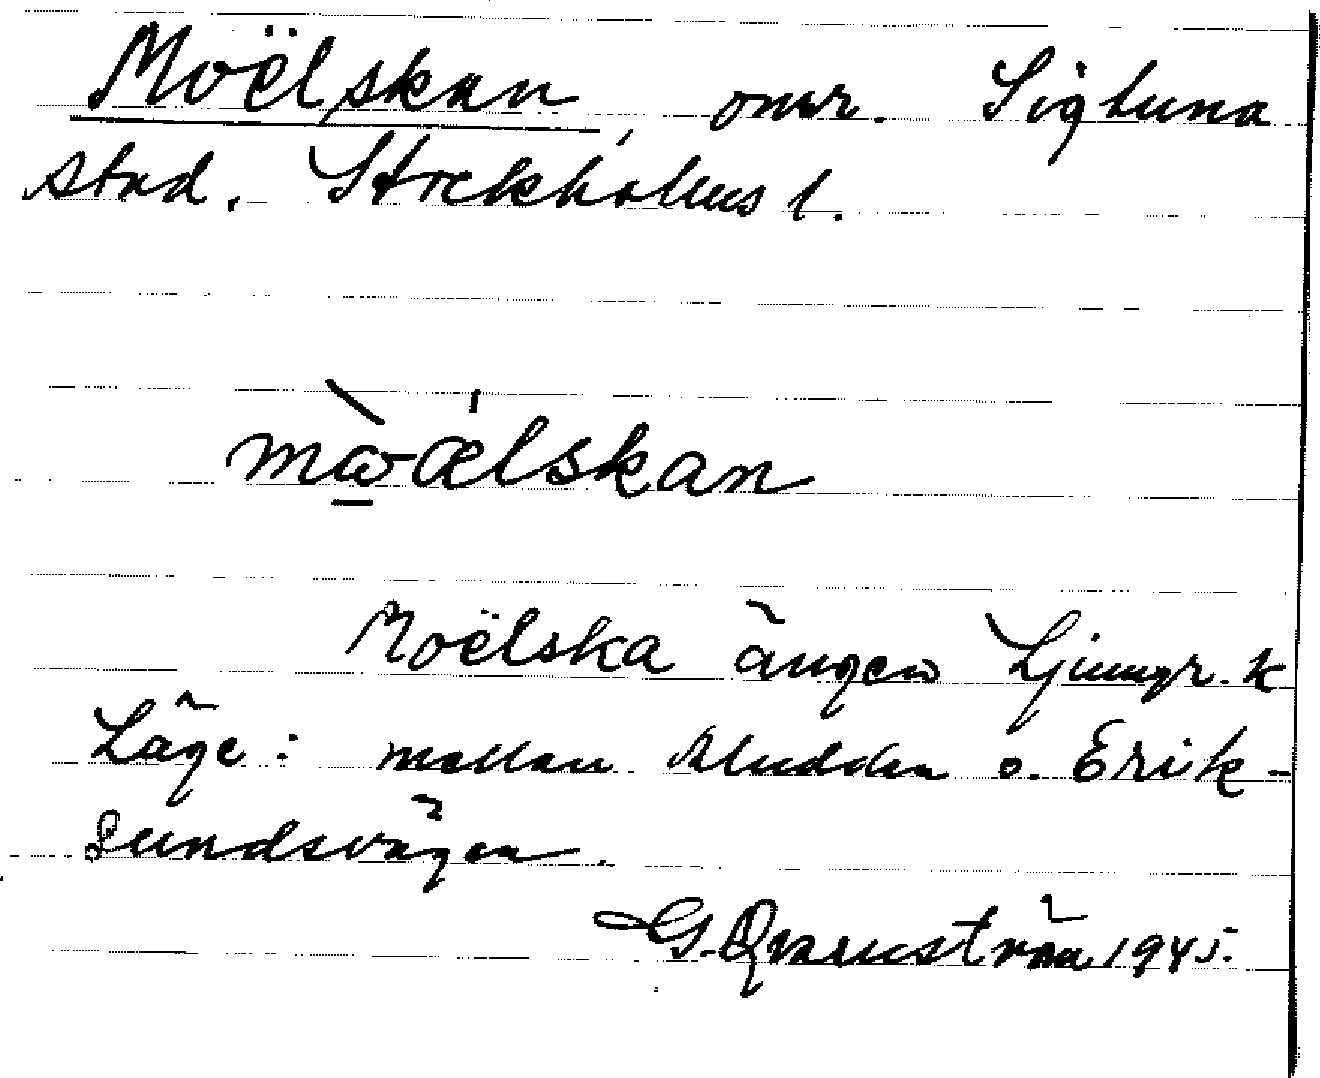 Moëlskan, omr. Sigtuna
stad. Stockholms l.
mὼ̲-ælskan
Moëlska ängen Ljunggr. k
Läge: mellan Kludden o. Erik-
sundsvägen.
G. Qvarnström 1945.